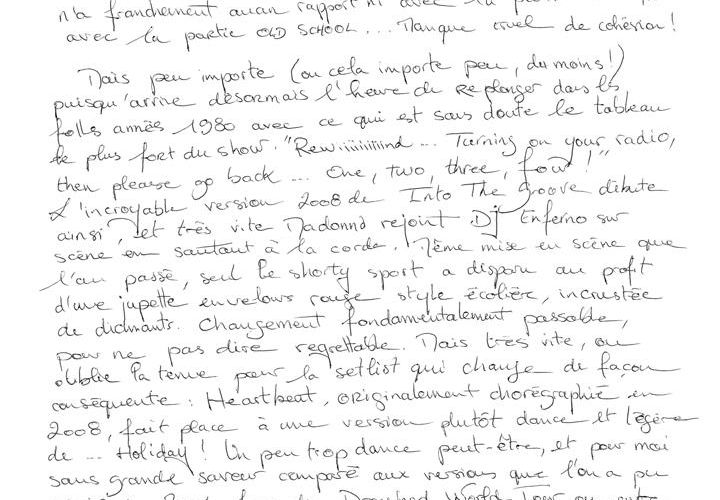 n'a franchement aucun rapport ni avec la
avec la partie OLD SCHOOL... Manque cruel de cohésion !
Mais peu importe (ou cela importe peu, du moins !)
puisqu'arrive désormais l'heure de Replonger dans les
folles années 1980 avec ce qui est sans doute le tableau
le plus fort du show. "Rewiiiiiiiiiind... Turning on your radio,
then please go back... One, two, three, four !"
L'incroyable version 2008 de Into The Groove débute
ainsi, et très vite Madonna rejoint DJ Enferno sur
scène en sautant à la corde. Même mise en scène que
l'an passé, seul le shorty sport a disparu au profit
d'une jupette en velours rouge style écolière, incrustée
de diamants. Changement fondamentalement passable,
pour ne pas dire regrettable. Mais très vite, on
oublie la tenue pour la setlist qui change de façon
conséquente : Heartbeat, originalement chorégraphié en
2008, fait place à une version plutôt dance et légère
de ... Holiday ! Un peu trop dance peut-être, et pour moi
sans grande saveur comparé aux versions que l'on a pu
Drowned World Tour ou